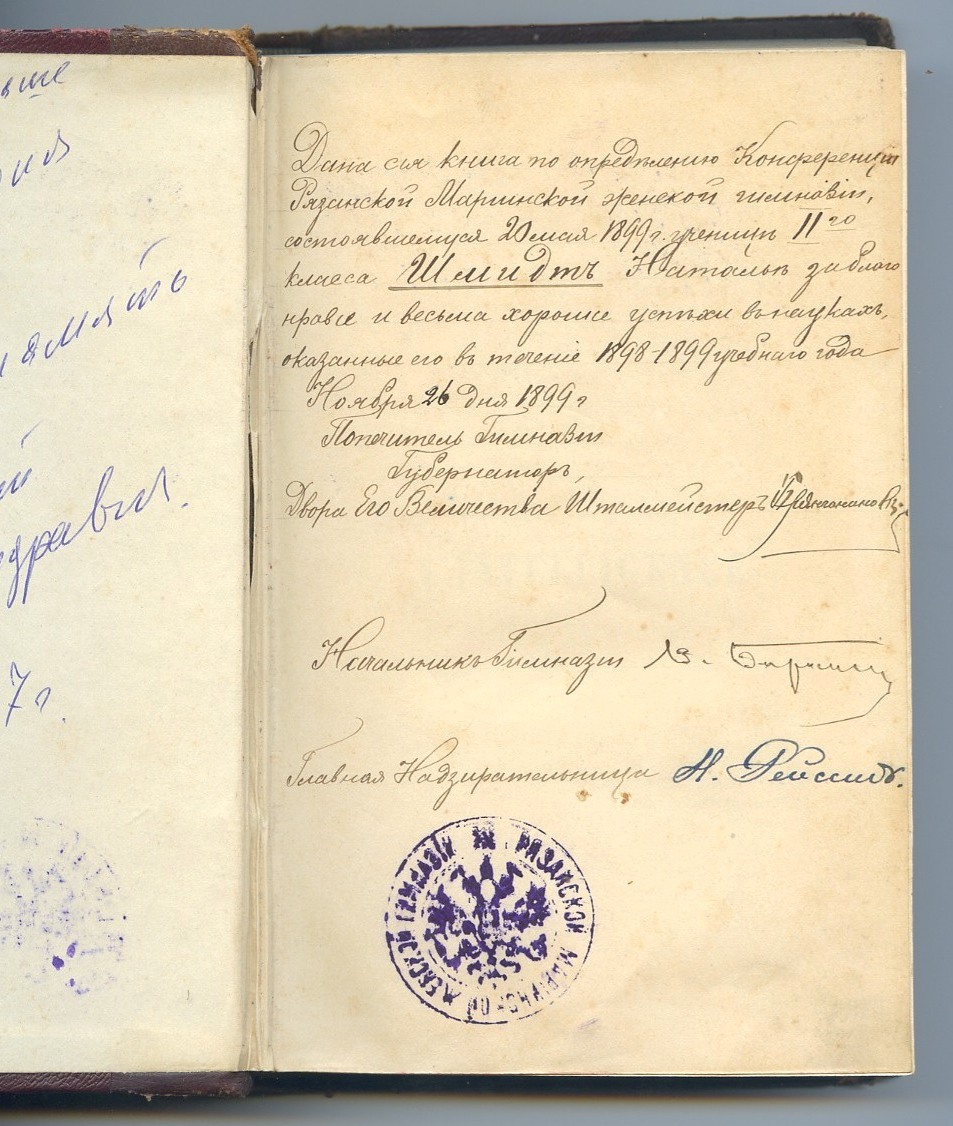 ыше
амять
здравия.
7 г.
Дана сія книга по опредѣленію Конференціи
Рязанской Маріинской женской гимназіи,
состоявшемуся 20 мая 1899 г. ученицѣ II го
класса Шмидтъ Натальѣ за благо
нравіе и весьма хорошіе успѣхи въ наукахъ,
оказанные ею въ теченіе 1898-1899 учебнаго года
Ноября 26 дня 1899 г
Попечитель Гимназіи
Губернаторъ,
Двора Его Величества Шталмейстеръ
Начальникъ Гимназіи
Главная Надзирательница Н.
РЯЗАНСКОЙ МАРІИНСКОЙ ЖЕНСКОЙ ГИМНАЗІИ